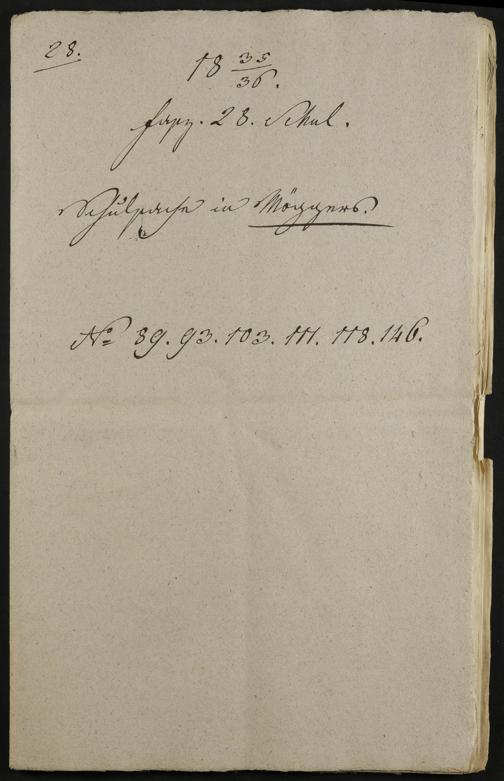 28.
18 35/36.
Fasz. 28. Schul.
Schulsache in Möggers.
No 89. 93. 103. 111. 118. 146.